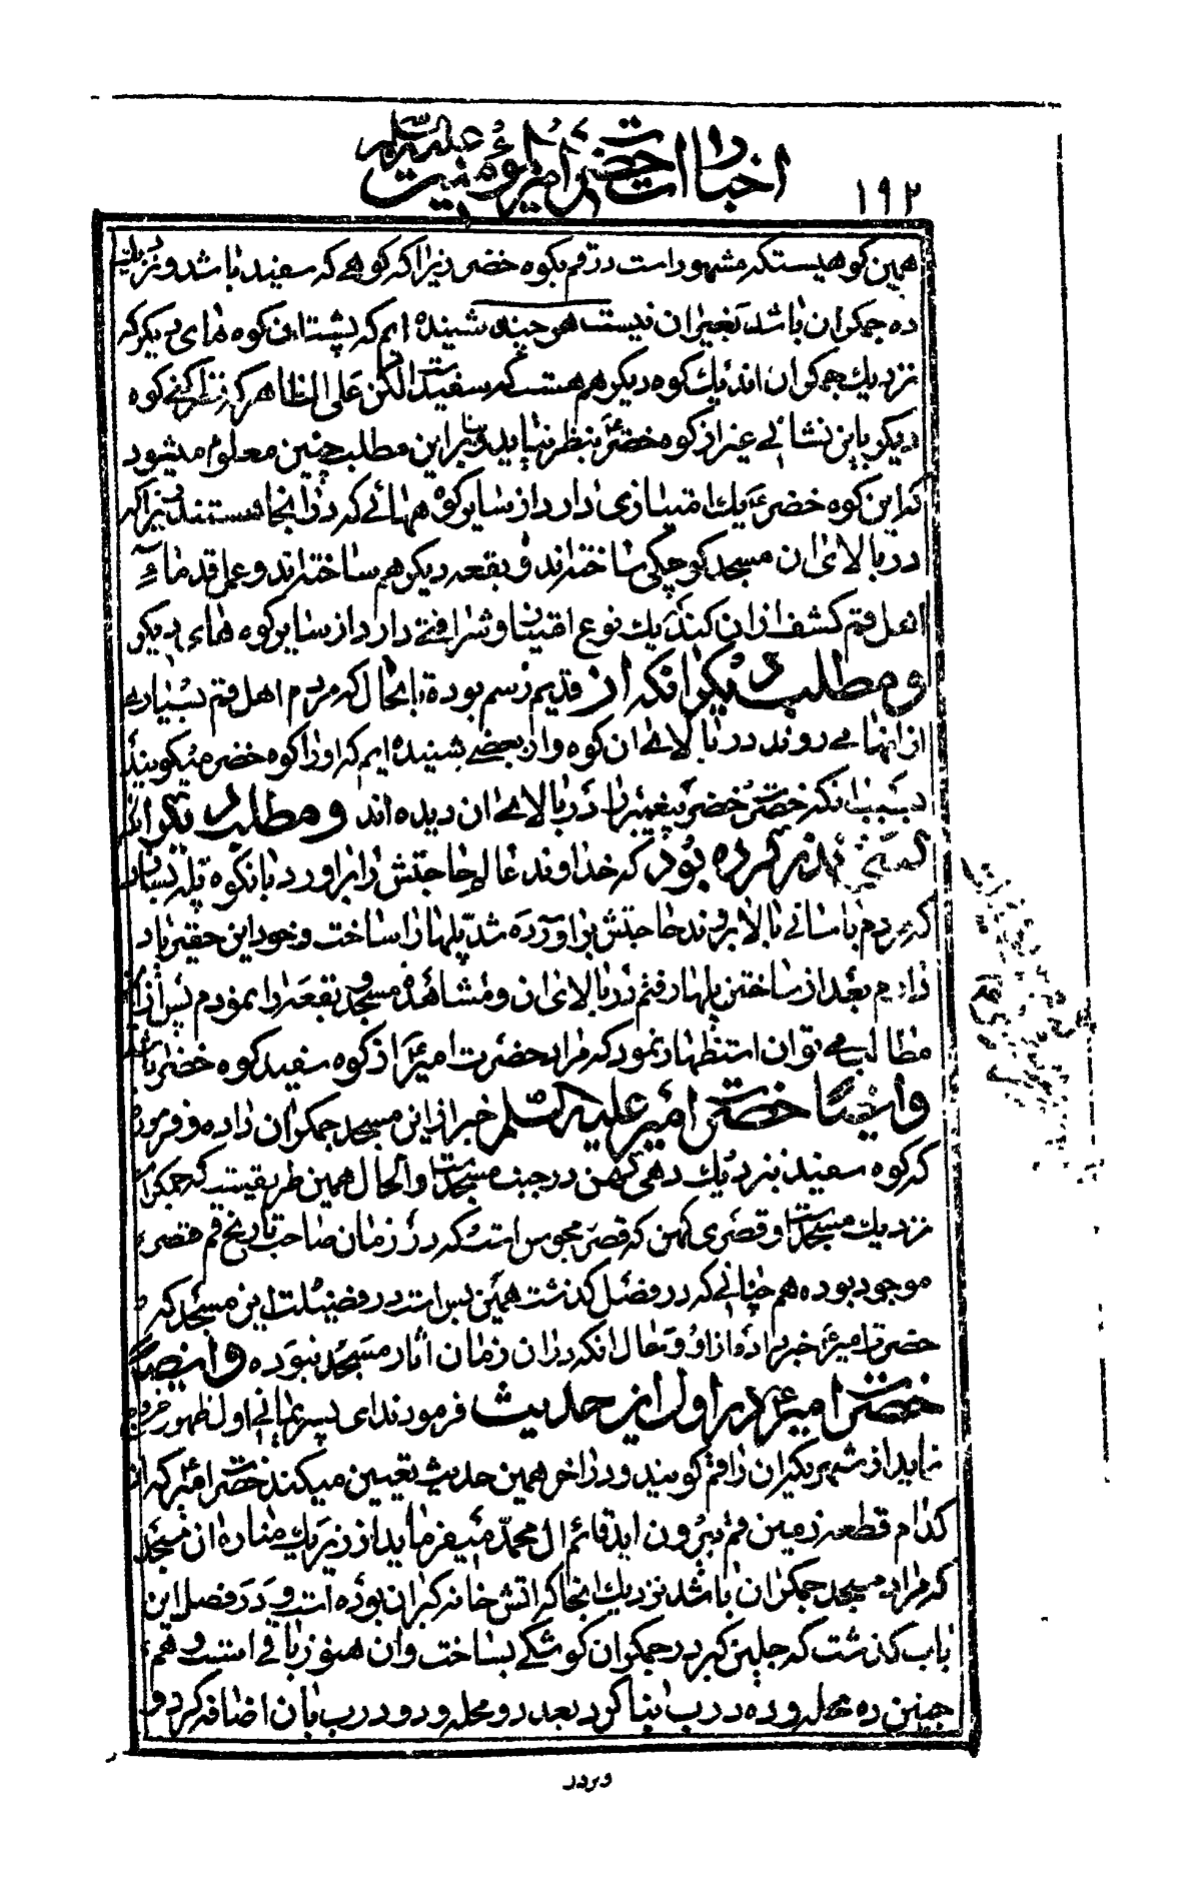 اخبارات حضرت امیرالمؤمنین علیه السلام
۱۹۲
همین کوهیستکه مشهور است در قم بکوه خضر زیرا که کوهے که سفید باشد و نزدیك
ده جمکران باشد بغیر ان نیست هر چند شنیده ایم که پشت این کوه های دیگر که
نزدیك جمکران اند یك کوه دیگر هم هست که سفید است لکن علی الظاهر که نظر کنے کوه
دیگر باین نشانے غیر از کوه خضر بنظر نیاید بنابراین مطلب چنین معلوم میشود
که این کوه خضر یك امتیازی دارد از سایر کوه هائے که در انجا هستند زیرا که
در بالای ان مسجد کوچکی ساخته اند و بقعه دیگر هم ساخته اند و عمل قدماء
اهل قم کشف از ان کند یك نوع امتیاز و شرافتے دارد از سایر کوه های دیگر
و مطلب دیگر انکه از قدیم رسم بوده تا بحال که مردم اهل قم بسیارے
از انها مے روند در بالاے ان کوه و از بعضے شنیده ایم که او را کوه خضر میگویند
بسبب انکه حضرت خضر پیغمبر را در بالاے ان دیده اند و مطلب دیگر انکه
شخصی نذر کرده بود که خداوند عالم حاجتش را براورد بانکوه پله بسازد
که مردم باسانے بالا روند حاجتش براورده شد پلها را ساخت و خود این حقیر یاد
دارم بعد از ساختن پلها رفتم در بالای ان و مشاهده مسجد و بقعه را نمودم پس از این
مطالب مے توان استظهار نمود که مراد حضرت امیر از کوه سفید کوه خضر باشد
و ایضا حضرت امیر علیه السلم خبر از این مسجد جمکران داده و فرموده
که کوه سفید بنزدیك دهی کهن در جنب مسجد است والحال همین طریقیست که جمکران
نزدیك مسجد است و قصری کهن که قصر مجوس است که در زمان صاحب تاریخ قم قصر
موجود بوده هم چنانے که در فصل گذشت همین بس است در فضیلت این مسجد که
حضرت امیر خبر داده از او و حال انکه در ان زمان اثار مسجد نبوده و ایضا
حضرت امیر در اول این حدیث فرمودند ای پسر یمانی اول ظهور خروج
نماید از شهریکه ان را قم گویند و در اخر همین حدیث تعیین میکند حضرت امیر که از
کدام قطعه زمین قم بیرون اید قائم ال محمد میفرماید از زیر یك مناره ان مسجد
که مراد مسجد جمکران باشد نزدیك انجا که اتش خانه کبران بوده است و در فصل این
باب گذشت که جلین کبر در جمکران کوشکے بساخت و ان هنوز باقے است و هم
چنین ده محله و ده درب بنا کرد بعد دو محله و دو درب بان اضافه کرد و
و بردر